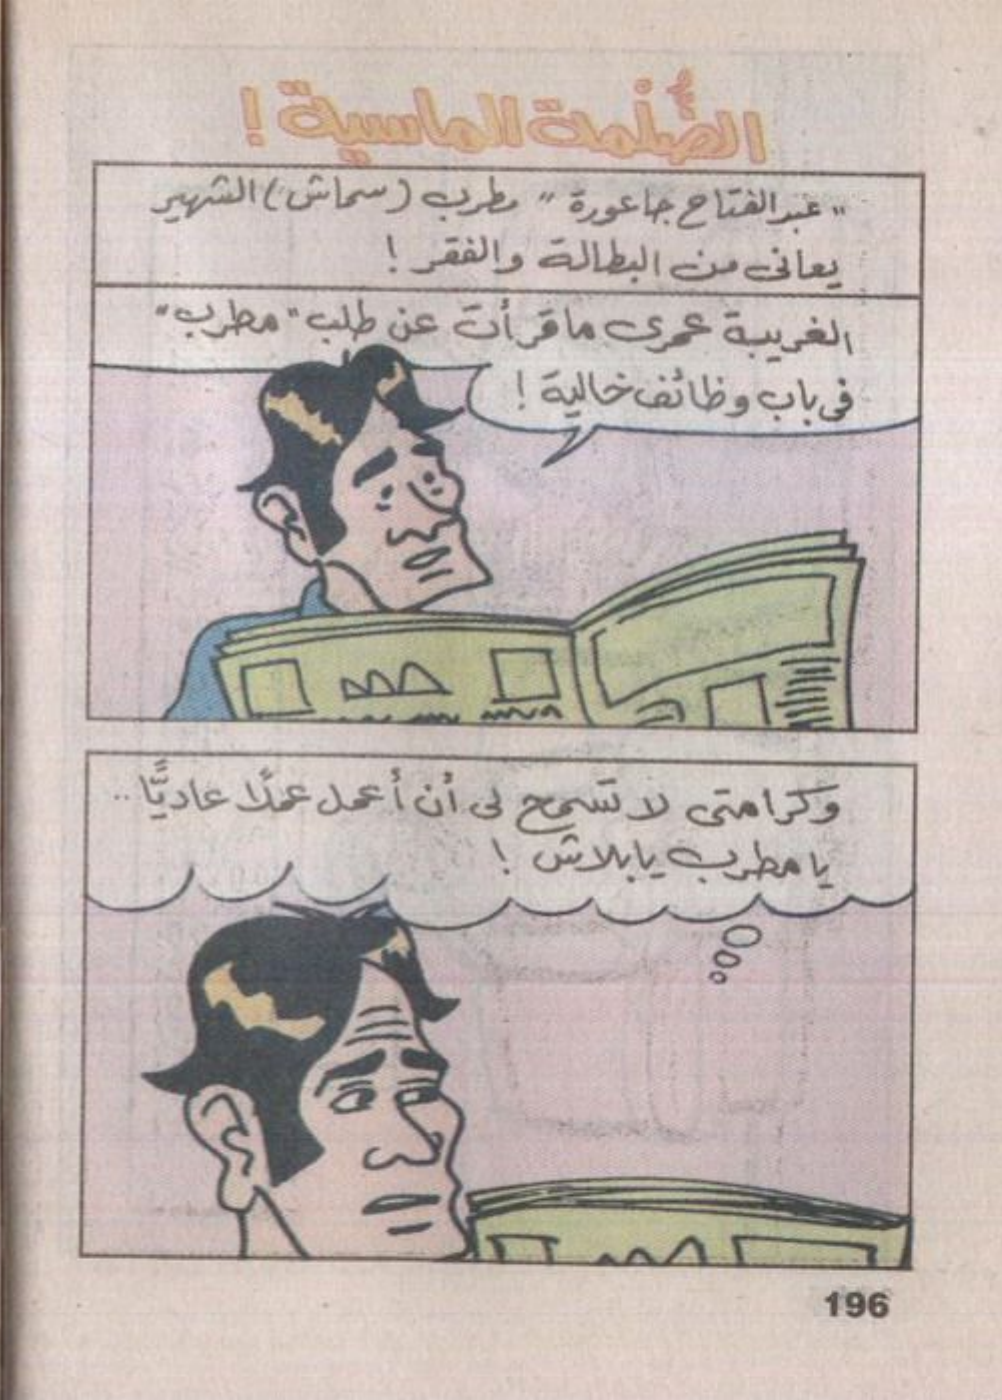 الضُّلْمة الماسية !
" عبد الفتاح جاعورة " مطرب ( سماش ) الشهير
يعانى من البطالة والفقر !
الغريبة عمرى ما قرأت عن طلب " مطرب "
فى باب وظائف خالية !
وكرامتى لا تسمح لى أن أعمل عملًا عاديًّا ..
يا مطرب يا بلاش !
196